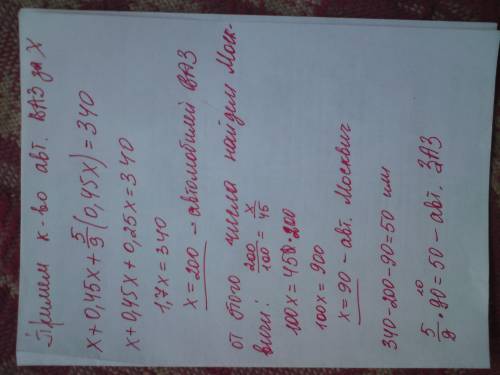 Примем к-во авт. ВАЗ за X
x+0,45x+5/9(0,45x)=340
x+0,45x+0,25x=340
1,7x=340
x=200 - автомобилей ВАЗ
от этого числа найдем Моск-
вичи: 200/100=x/45
100x=458*200
100x=900
x=90 - авт. Москвич
340-200-90=50 или
5/9*90=50 - авт. ЗАЗ
10